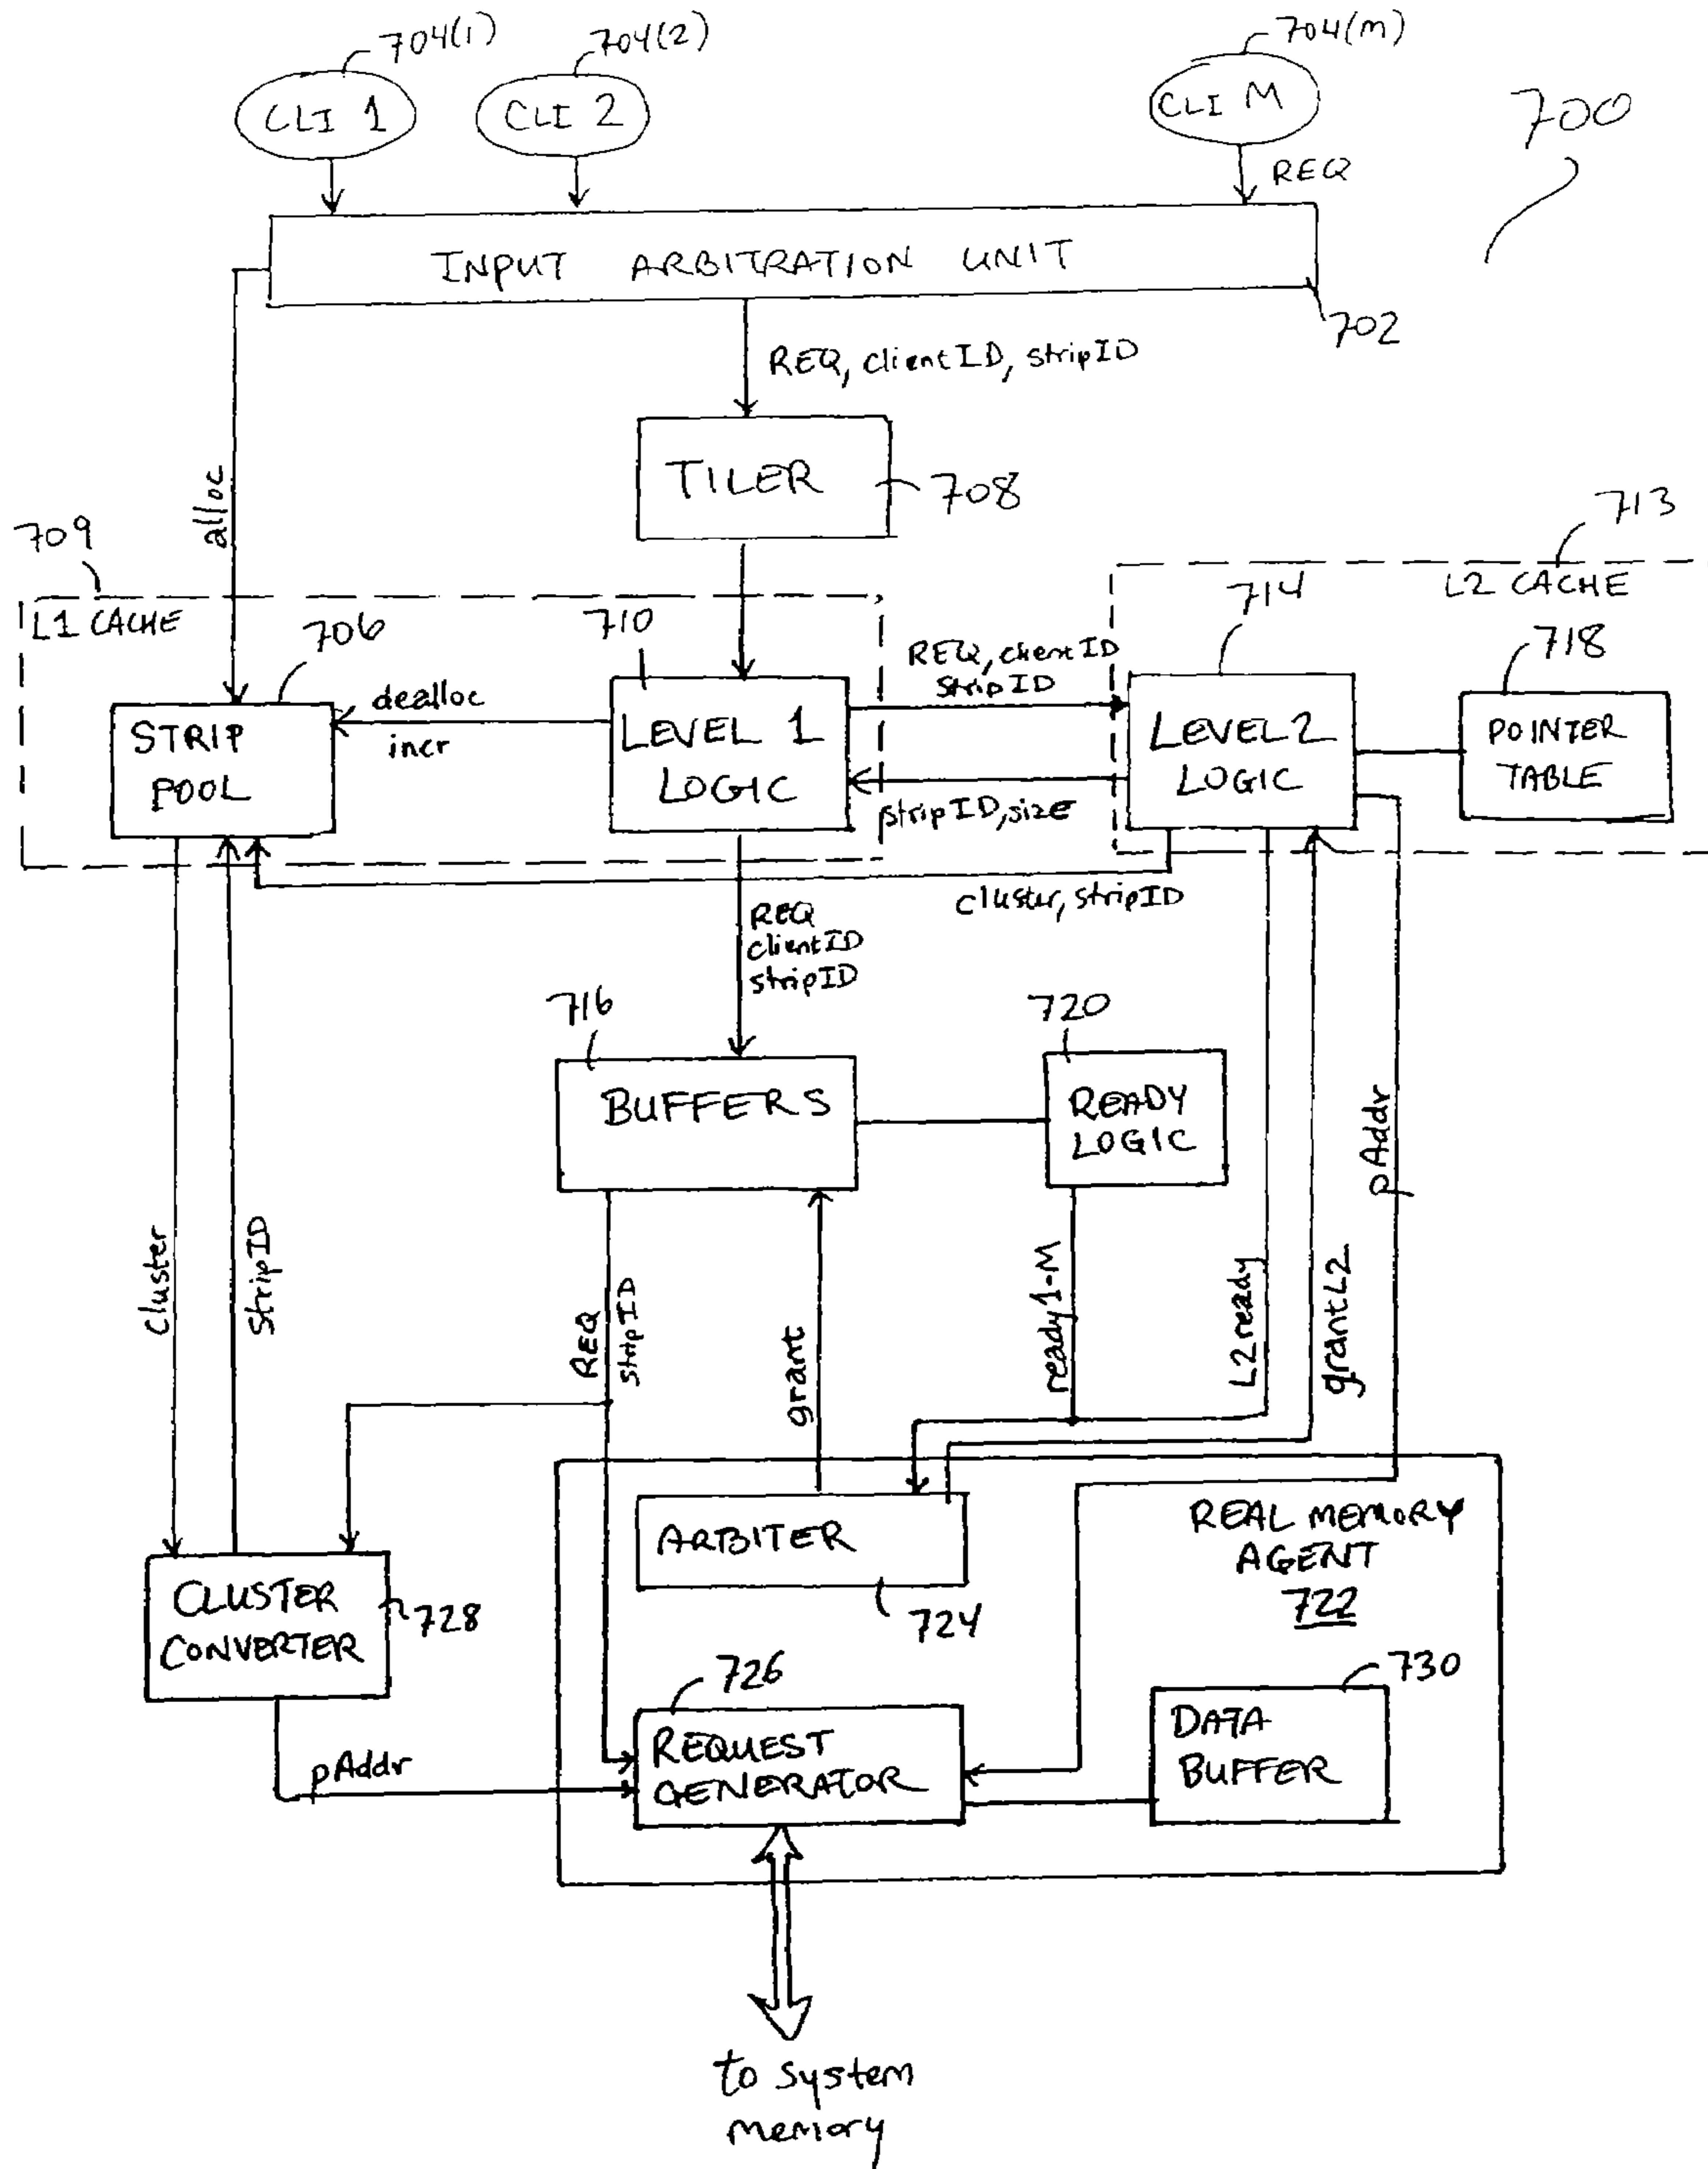 704(1)
704(2)
704(m)
CLI 1
CLI 2
CLI M
700
REQ
INPUT ARBITRATION UNIT
702
REQ, clientID, stripID
TILER
708
alloc
709
713
L1 CACHE
L2 CACHE
706
710
714
718
REQ, clientID
StripID
dealloc
incr
STRIP
POOL
LEVEL 1
LOGIC
LEVEL 2
LOGIC
POINTER
TABLE
stripID, size
cluster, stripID
REQ
clientID
stripID
716
720
BUFFERS
READY
LOGIC
pAddr
Cluster
StripID
REQ
stripID
grant
ready1-M
L2ready
grantL2
ARBITER
724
REAL MEMORY
AGENT
722
CLUSTER
CONVERTER
728
726
730
REQUEST
GENERATOR
DATA
BUFFER
pAddr
to system
memory